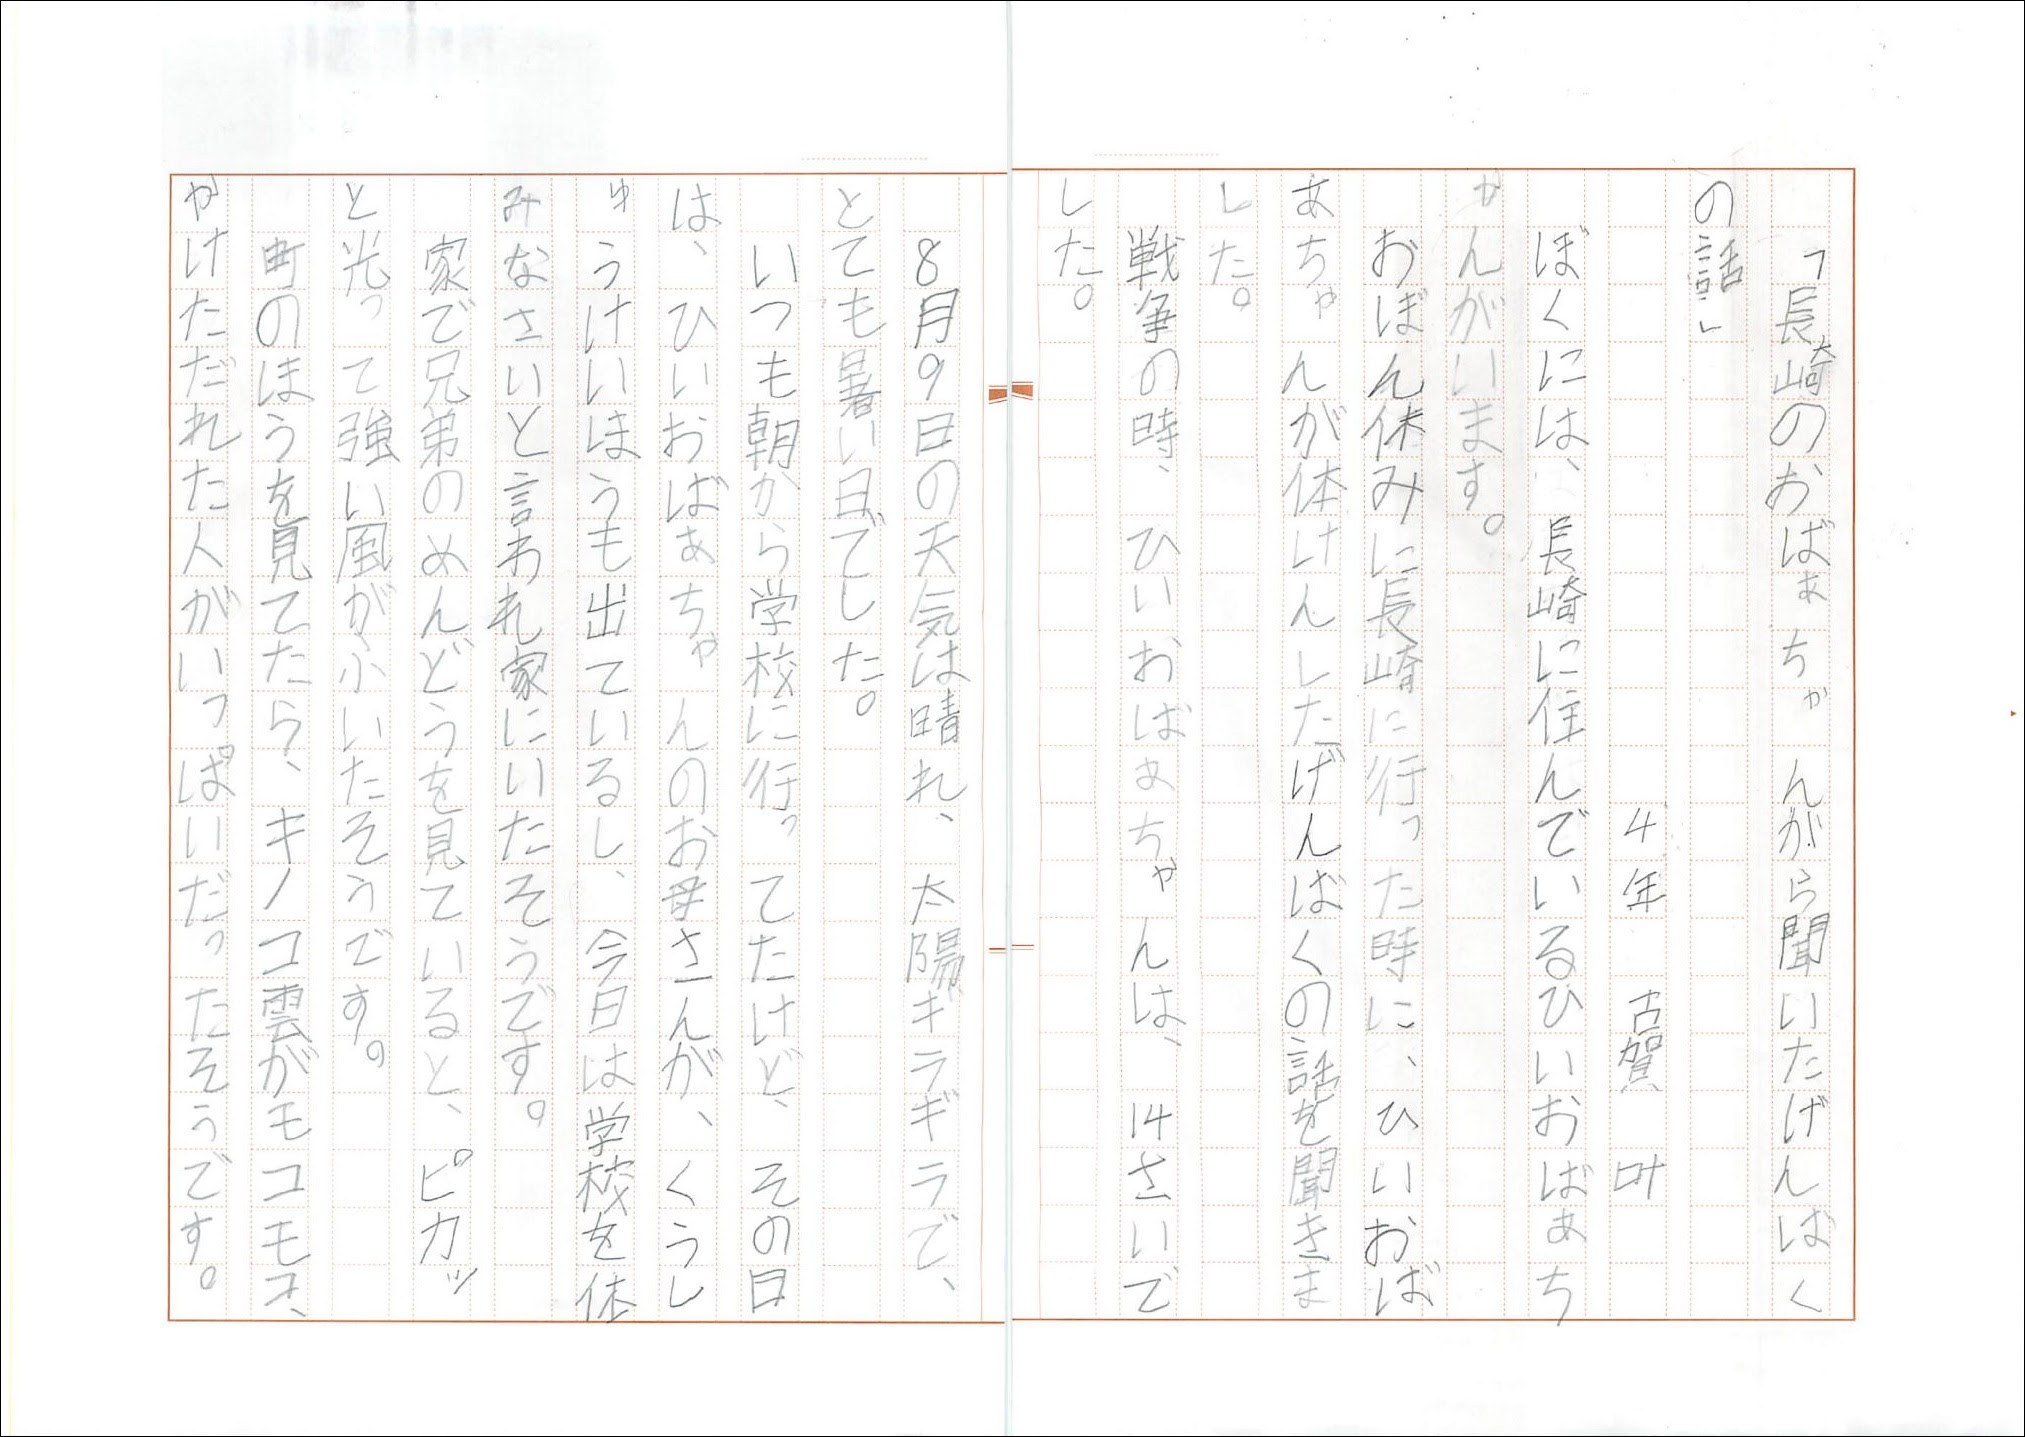 「長崎のおばぁちゃんがら聞いたげんばく
の話」
4年 古賀 叶
ぼくには、長崎に住んでいるひいおばぁち
ゃんがいます。
おぼん休みに長崎に行った時に、ひいおば
あちゃんが体けんしたげんばくの話を聞きま
した。
戦争の時、ひいおばぁちゃんは、14さいで
した。
8月9日の天気は晴れ、太陽ギラギラで、
とても暑い日でした。
いつも朝から学校に行ってたけど、その日
は、ひいおばぁちゃんのお母さんが、くうし
ゅうけいほうも出ているし、今日は学校を休
みなさいと言われ家にいたそうです。
家で兄弟のめんどうを見ていると、ピカッ
と光って強い風がふいたそうです。
町のほうを見てたら、キノコ雲がモコモコ、
やけただれた人がいっぱいだったそうです。